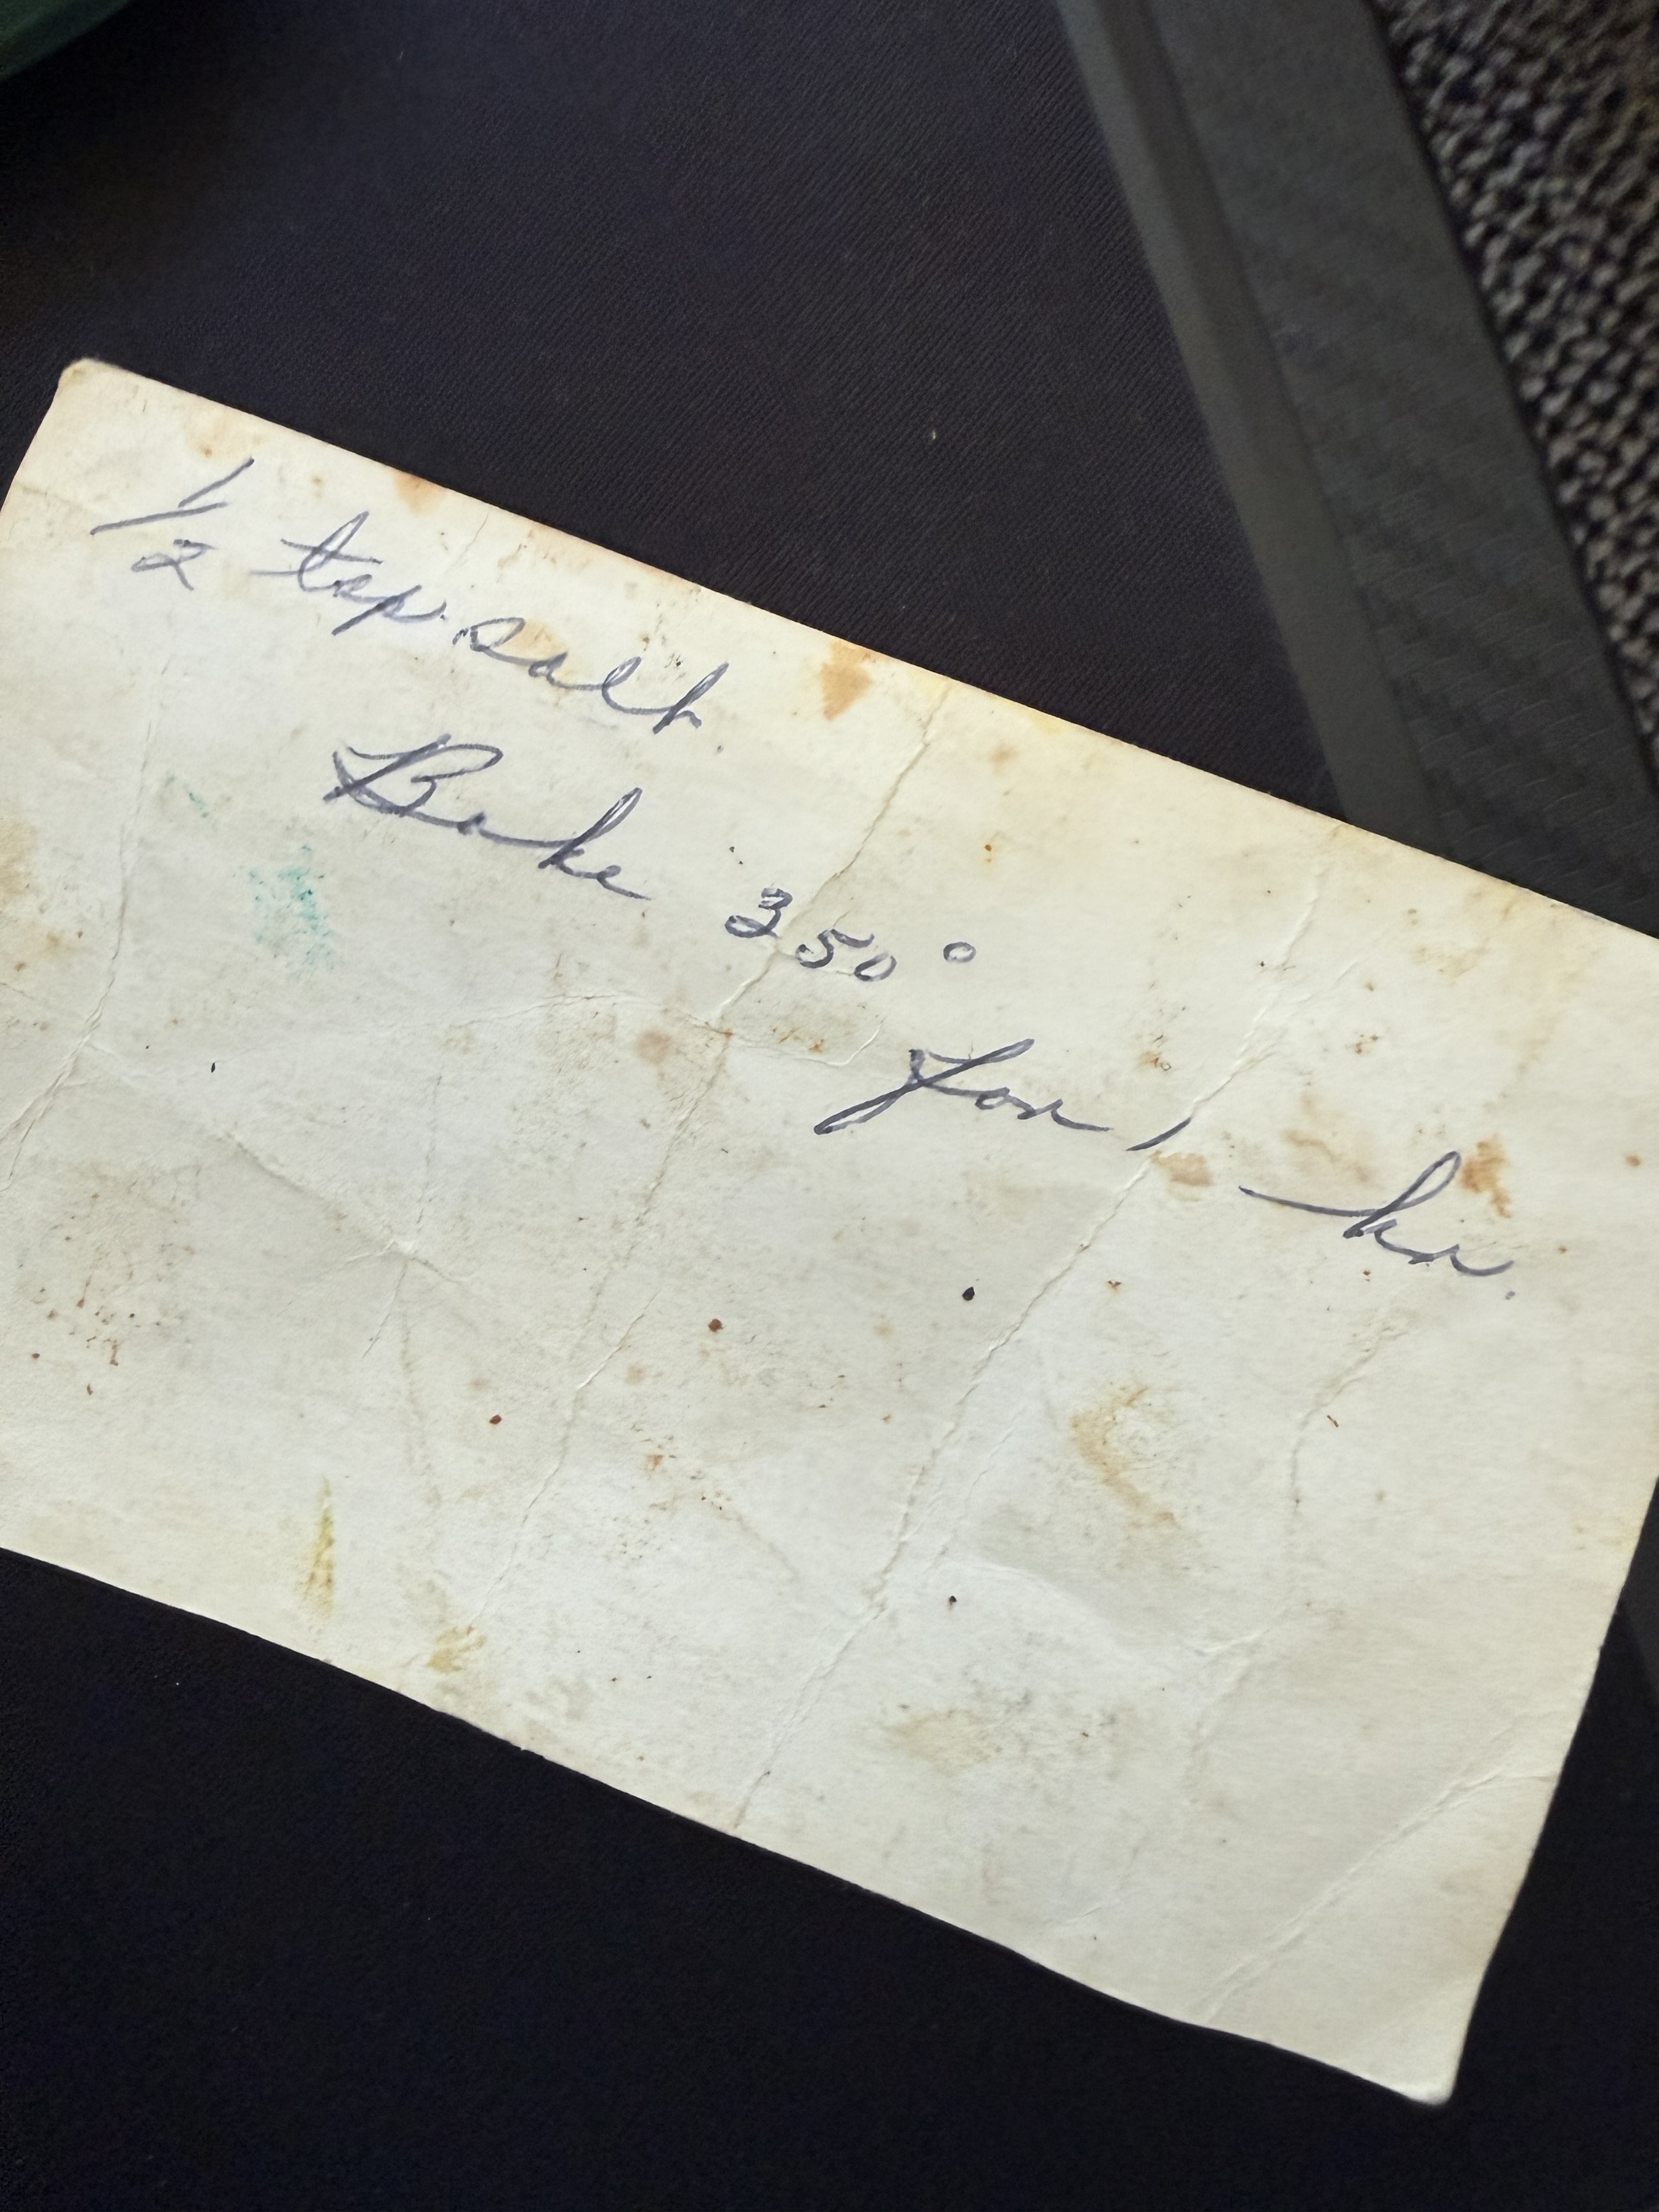 1/2 tsp. salt.
Bake 350°
for 1 hr.